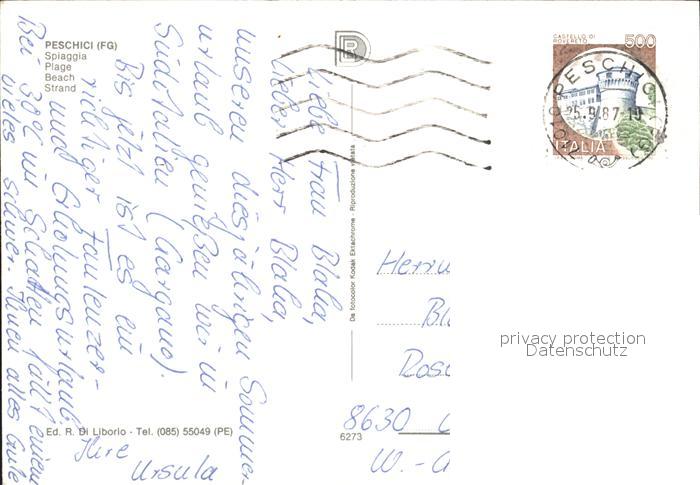 PESCHICI (FG)
Spiaggia
Plage
Beach
Strand
Liebe Frau Blaha,
lieber Herr Blaha,
unseren diesjährigen Sommer-
urlaub genießen wir in
Süditalien (Gargano).
Bis jetzt ist es ein
richtiger Faulenzer-
und Erholungsurlaub.
Bei 38C im Schatten fällt einem
vieles schwer. Ihnen alles Gute
Ihre
Ursula
Ed. R. Di Liborio - Tel. (085) 55049 (PE)
Da fotocolor Kodak Ektachrome - Riproduzione vietata
6273
CASTELLO DI
ROVERETO
500
ITALIA
PESCHICI
25.9.87-10
8630
W.-
privacy protection
Datenschutz